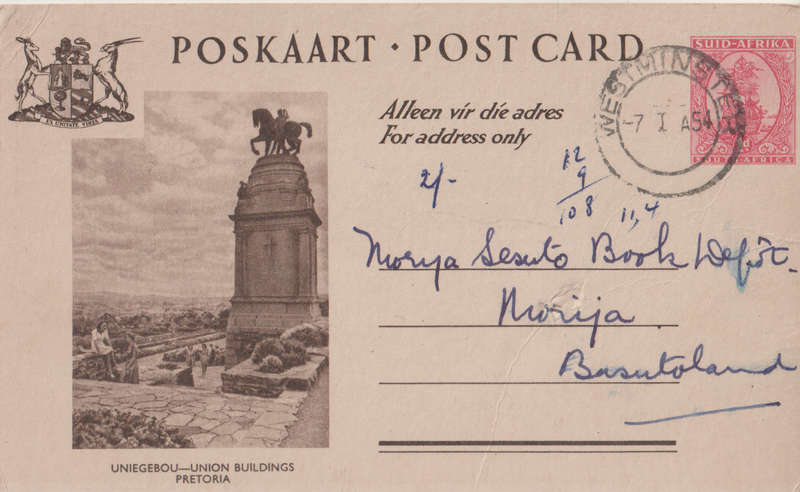 POSKAART · POST CARD
EX UNITATE VIRES
Alleen vir die adres
For address only
SUID-AFRIKA
SOUTH AFRICA
WESTMINSTER
-7 I A54
2/-
12
9
108
11,4
Morija Sesuto Book Depôt.
Morija.
Basutoland
UNIEGEBOU—UNION BUILDINGS
PRETORIA